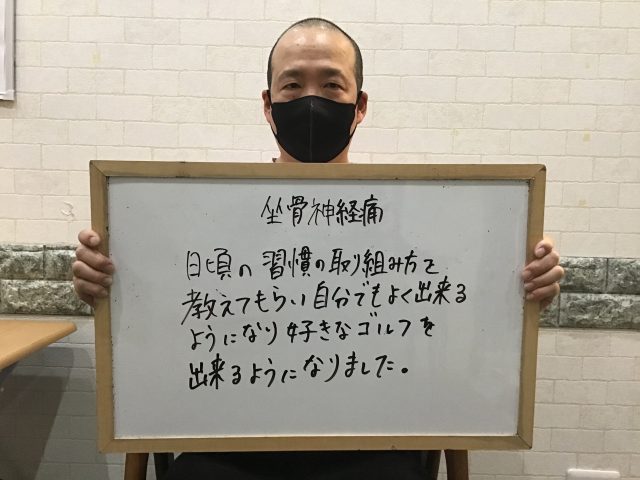 坐骨神経痛
日頃の習慣の取り組み方を
教えてもらい自分でもよく出来る
ようになり好きなゴルフを
出来るようになりました。